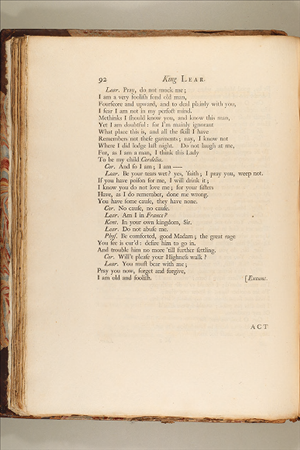 92 King LEAR.
Lear. Pray, do not mock me;
I am a very foolish fond old man,
Fourscore and upward, and to deal plainly with you,
I fear I am not in my perfect mind.
Methinks I should know you, and know this man,
Yet I am doubtful: for I'm mainly ignorant
What place this is, and all the skill I have
Remembers not these garments; nay, I know not
Where I did lodge last night. Do not laugh at me,
For, as I am a man, I think this Lady
To be my child Cordelia.
Cor. And so I am; I am ——
Lear. Be your tears wet? yes, 'faith; I pray you, weep not.
If you have poison for me, I will drink it;
I know you do not love me; for your sisters
Have, as I do remember, done me wrong.
You have some cause, they have none.
Cor. No cause, no cause.
Lear. Am I in France?
Kent. In your own kingdom, Sir.
Lear. Do not abuse me.
Phys. Be comforted, good Madam; the great rage
You see is cur'd: desire him to go in,
And trouble him no more 'till further settling.
Cor. Will't please your Highness walk?
Lear. You must bear with me;
Pray you now, forget and forgive,
I am old and foolish. [Exeunt.
ACT